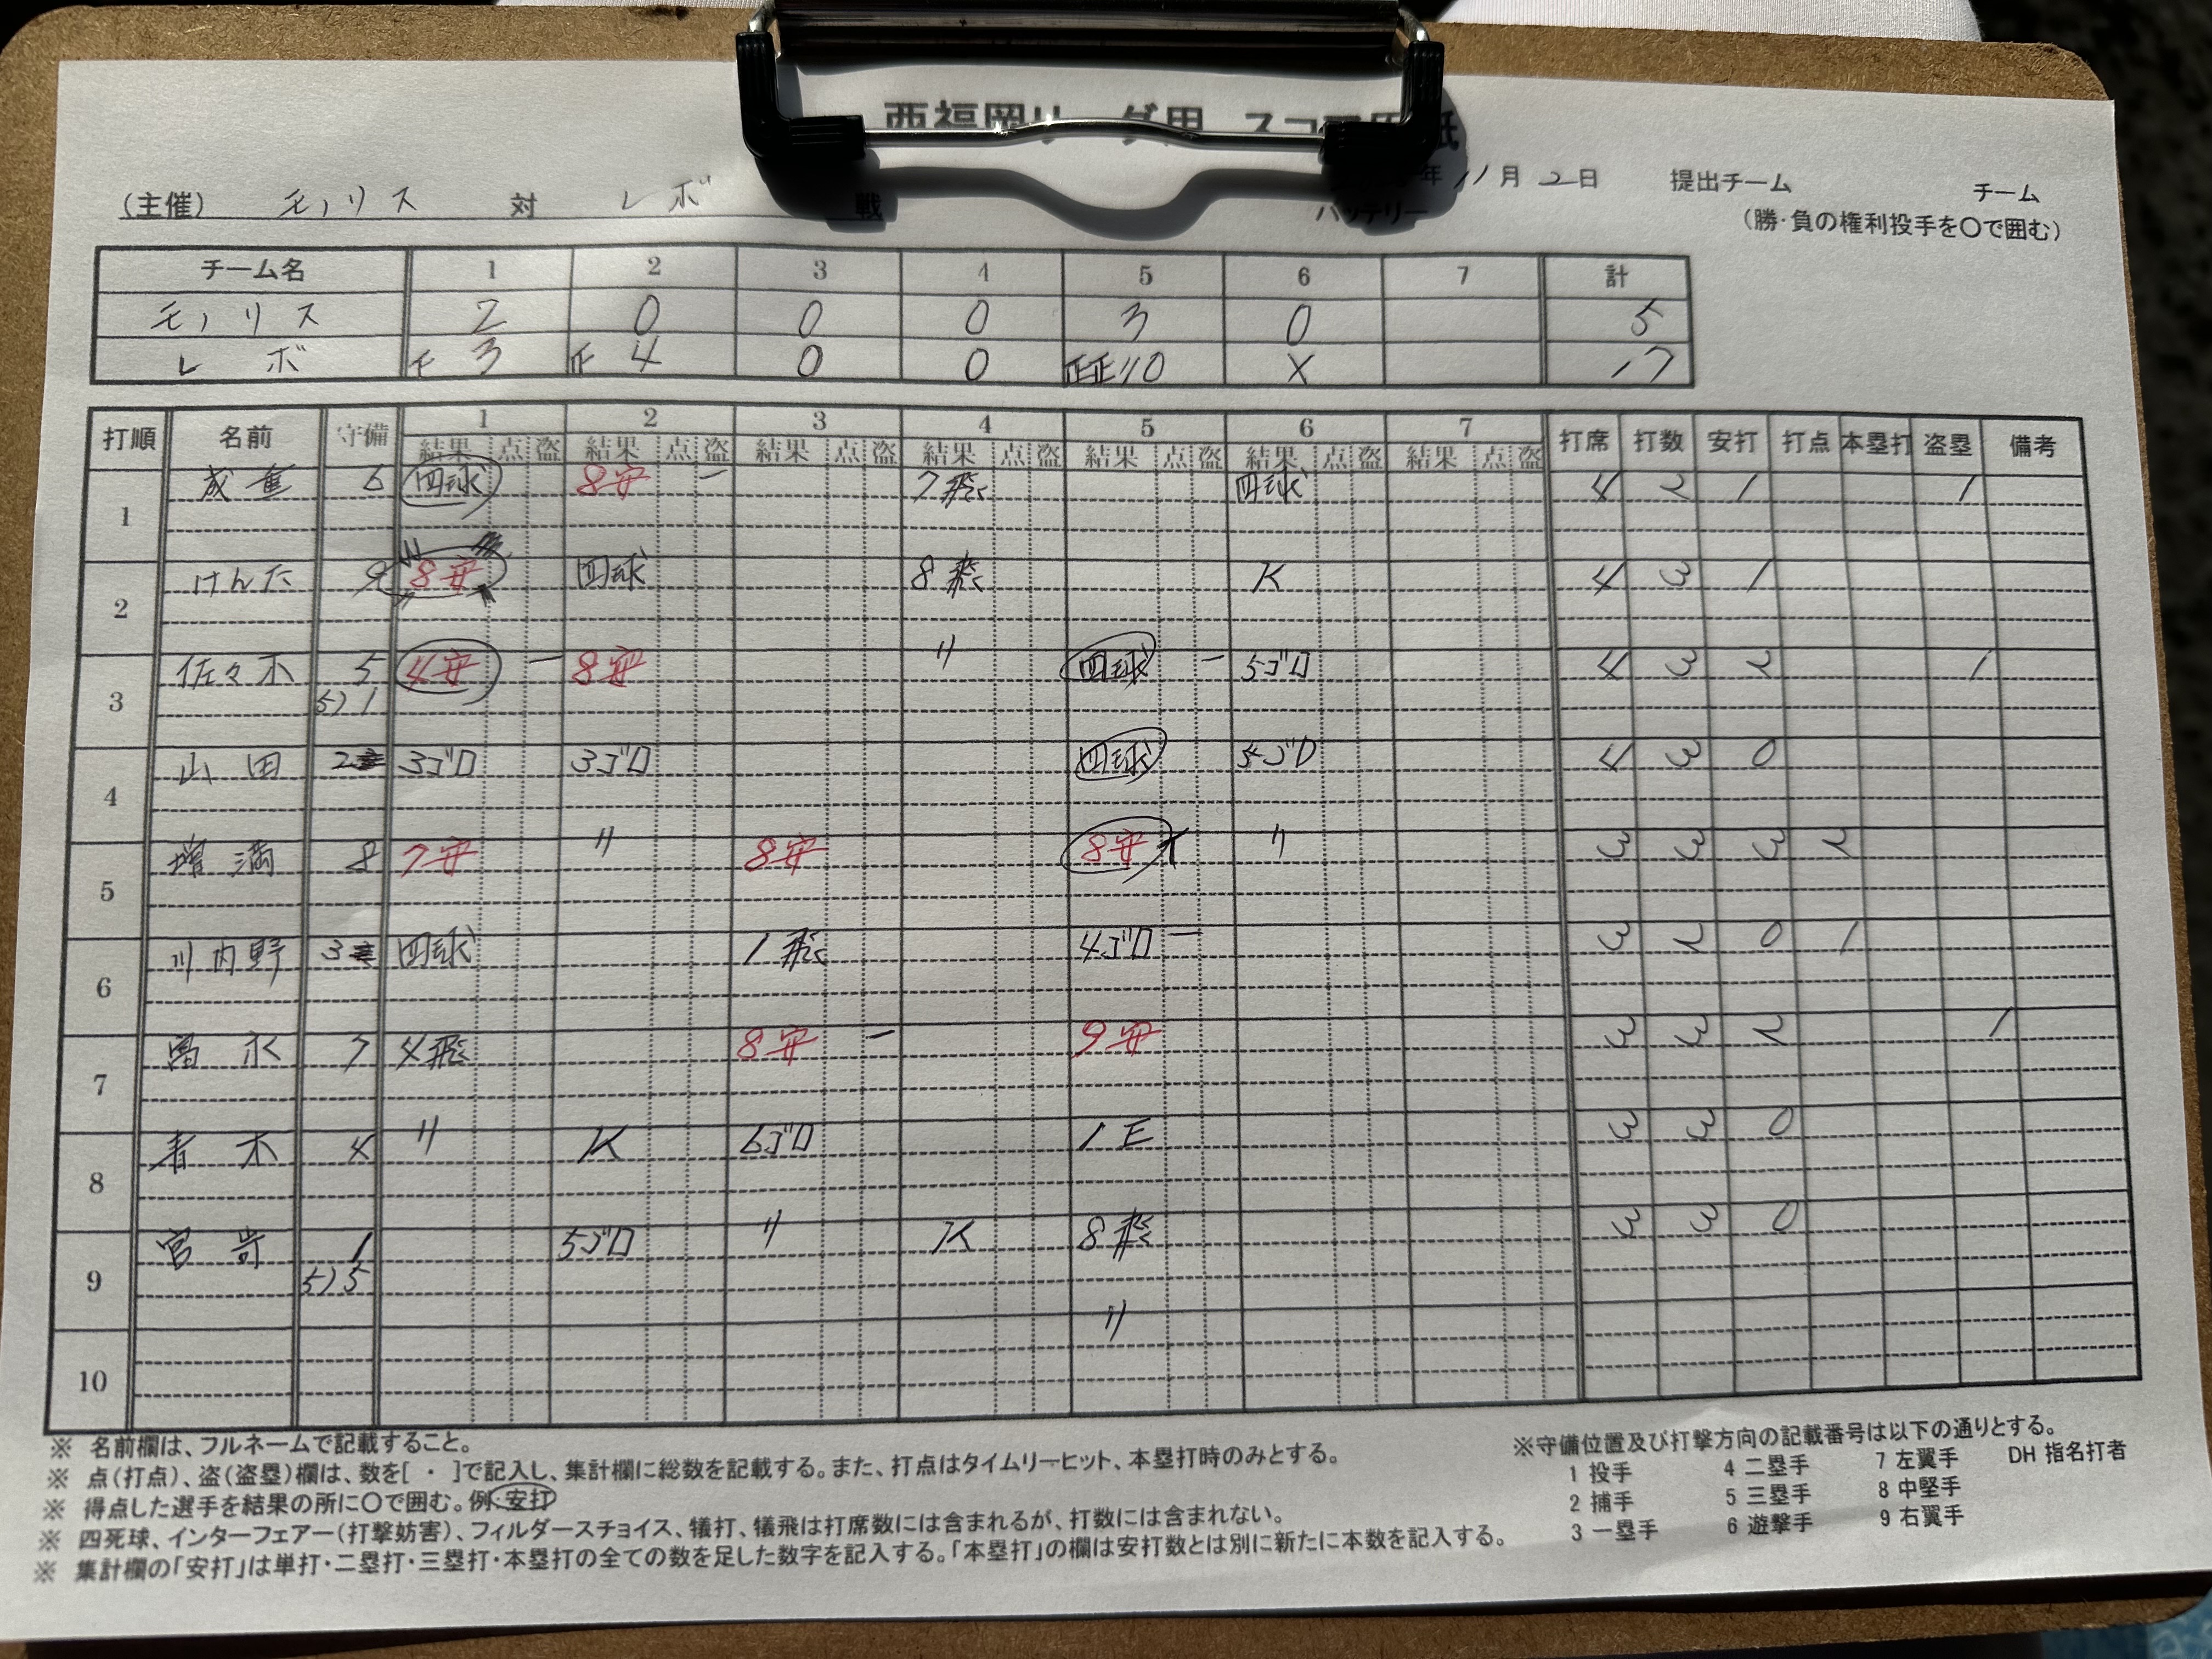 西福岡リーグ用 スコア用紙
(主催) モノリス 対 レボ 戦 年 11月 2日 提出チーム チーム
バッテリー (勝・負の権利投手を〇で囲む)
チーム名 1 2 3 4 5 6 7 計
モノリス 2 0 0 0 3 0 5
レボ 3 正 4 0 0 正正 10 X 17
打順 名前 守備 1 2 3 4 5 6 7 打席 打数 安打 打点 本塁打 盗塁 備考
結果 点 盗 結果 点 盗 結果 点 盗 結果 点 盗 結果 点 盗 結果 点 盗 結果 点 盗
1 成重 6 四球 8安 一 7飛 四球 4 2 1 1
2 けんた 9 8安 四球 8飛 K 4 3 1
3 佐々木 5 4安 一 8安 〃 四球 一 5ゴロ 4 3 2 1
5) 1
4 山田 2 3ゴロ 3ゴロ 四球 5ゴロ 4 3 0
5 増満 8 7安 〃 8安 8安 〃 3 3 3 2
6 川内野 3 四球 1飛 4ゴロ 一 3 2 0 1
7 冨永 7 4飛 8安 一 9安 3 3 2 1
8 青木 4 〃 K 6ゴロ 1E 3 3 0
9 宮嵜 1 5ゴロ 〃 K 8飛 3 3 0
5) 5
10 〃
※ 名前欄は、フルネームで記載すること。
※ 点(打点)、盗(盗塁)欄は、数を[ ・ ]で記入し、集計欄に総数を記載する。また、打点はタイムリーヒット、本塁打時のみとする。
※ 得点した選手を結果の所に〇で囲む。例:安打
※ 四死球、インターフェアー(打撃妨害)、フィルダースチョイス、犠打、犠飛は打席数には含まれるが、打数には含まれない。
※ 集計欄の「安打」は単打・二塁打・三塁打・本塁打の全ての数を足した数字を記入する。「本塁打」の欄は安打数とは別に新たに本数を記入する。
※守備位置及び打撃方向の記載番号は以下の通りとする。
1 投手 4 二塁手 7 左翼手 DH 指名打者
2 捕手 5 三塁手 8 中堅手
3 一塁手 6 遊撃手 9 右翼手